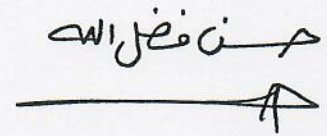 حسن فضل الله